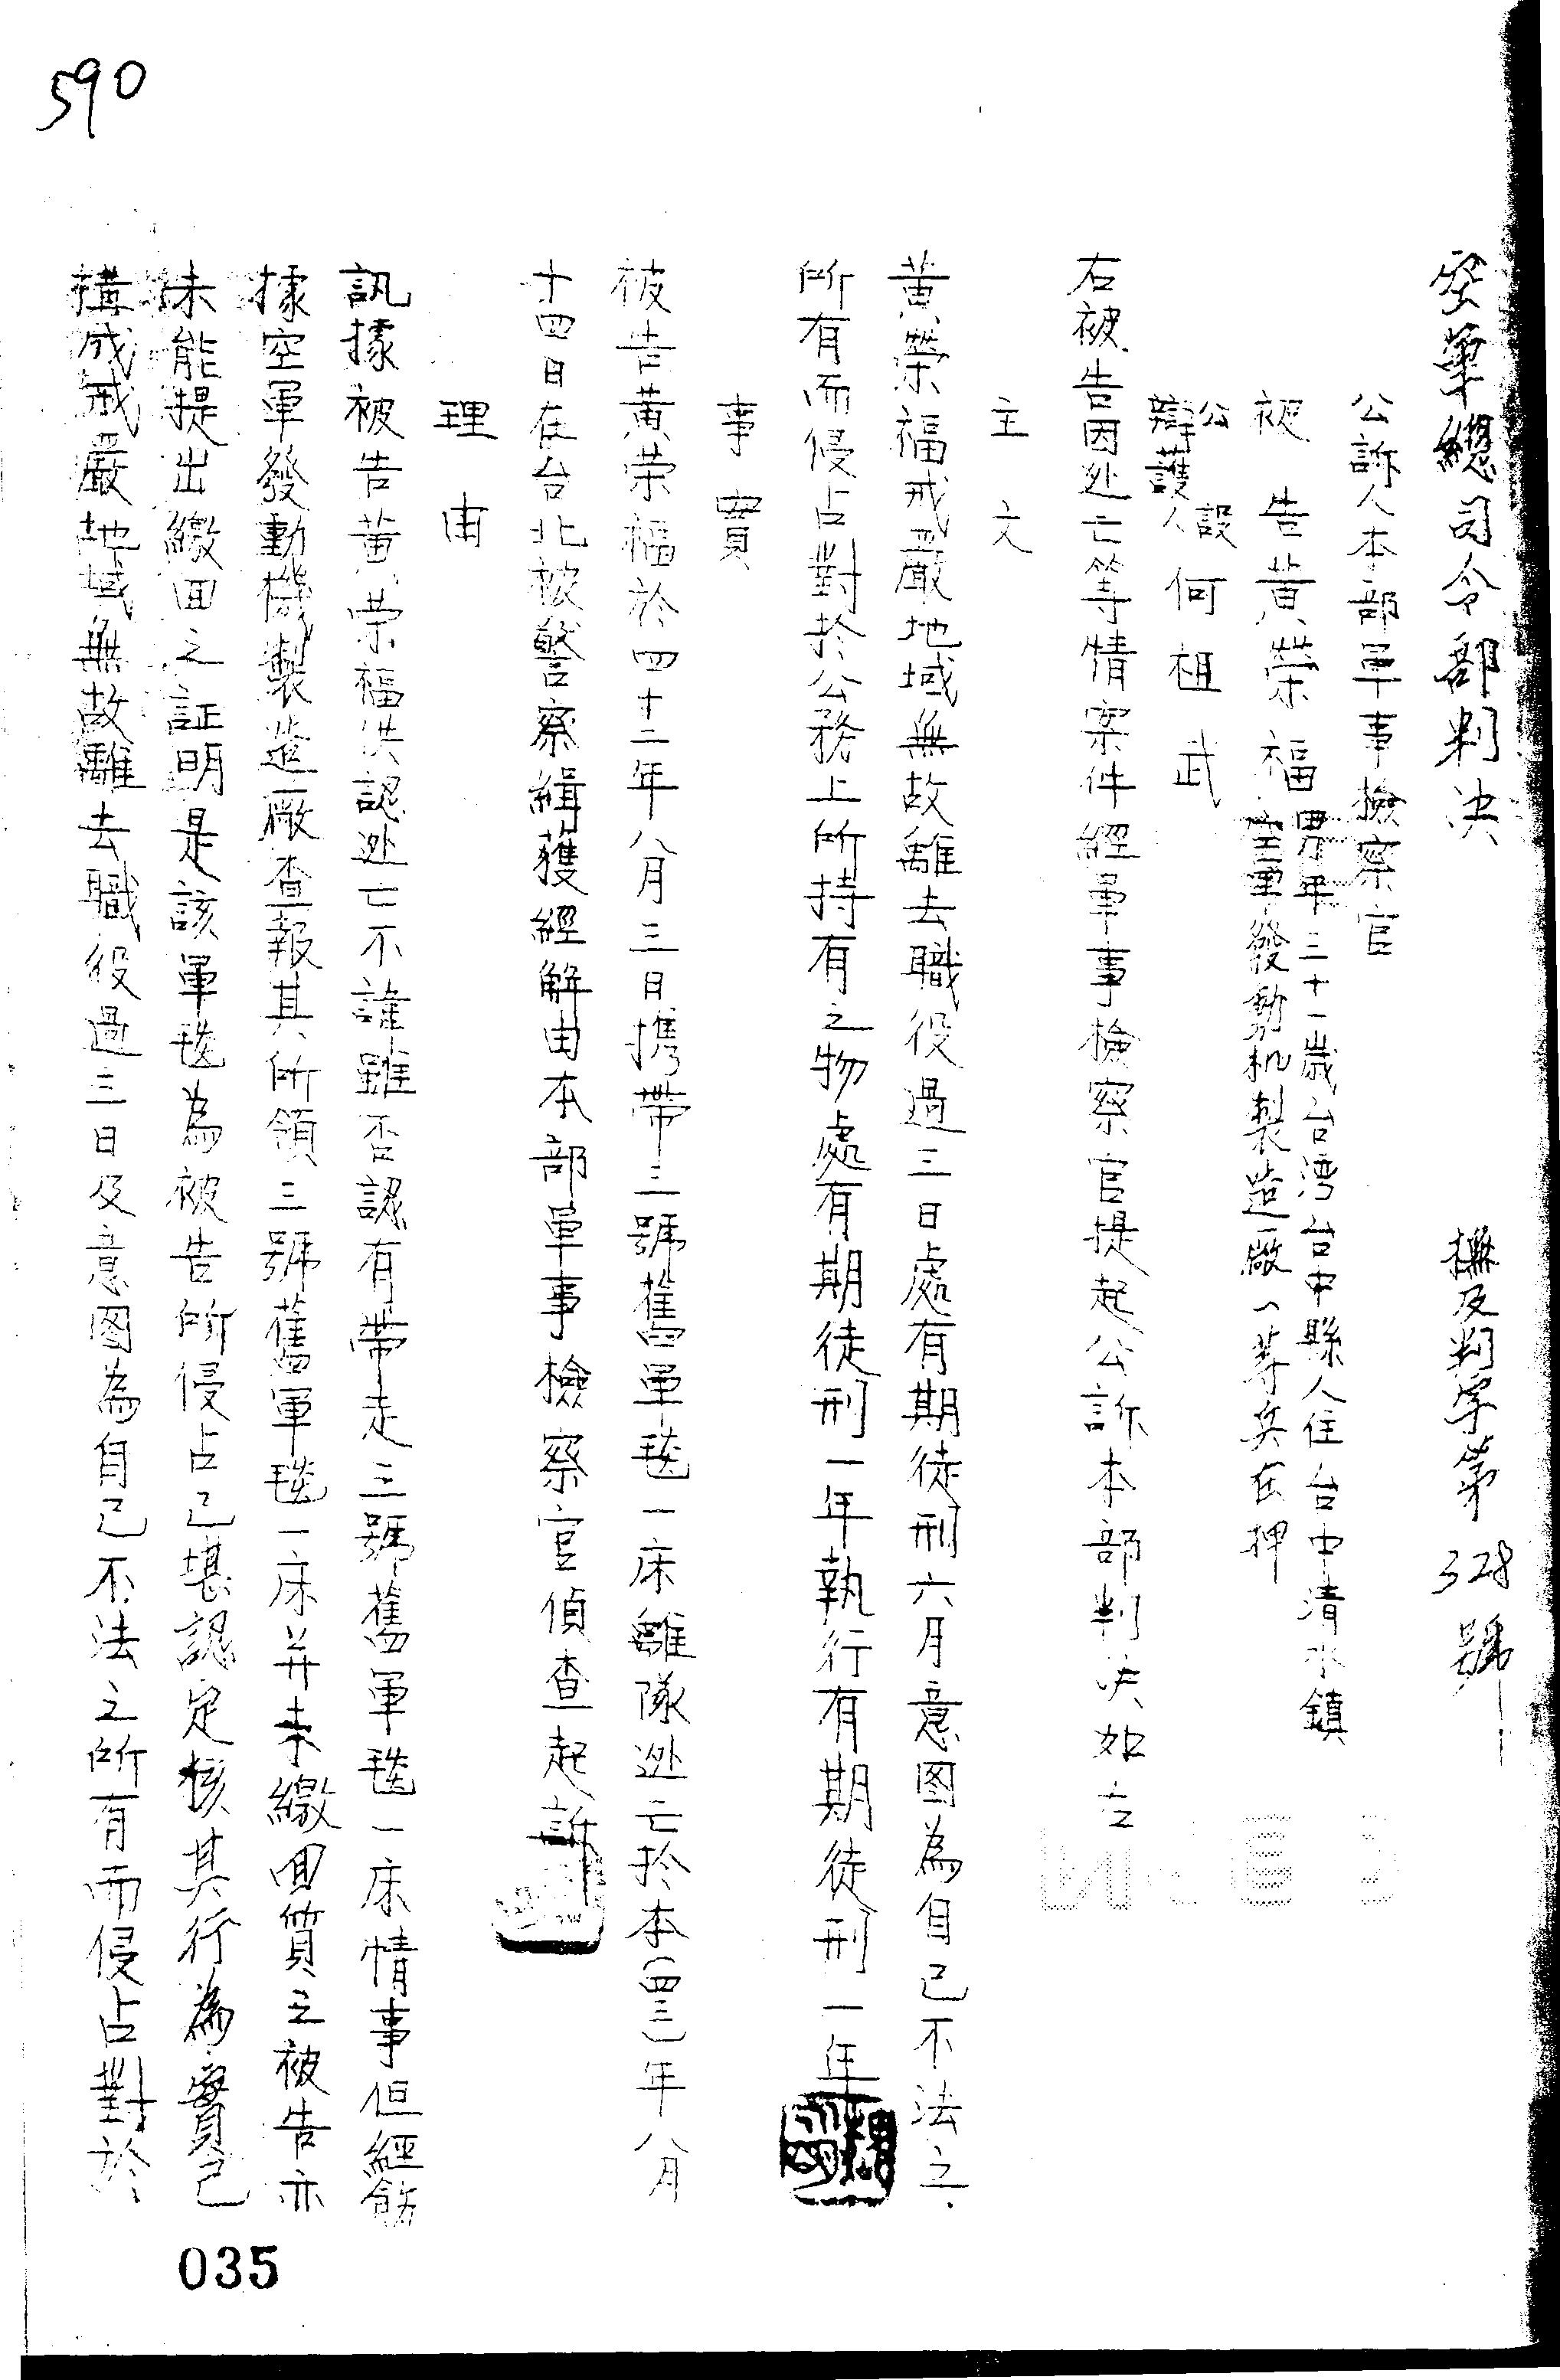 590
空軍總司令部判決
撫及判字第328號
公訴人本部軍事檢察官
被告黃榮福
男年三十一歲台湾台中縣人住台中清水鎮
空軍發動机製造廠一等兵在押
公設
辯護人
何祖武
右被告因逃亡等情案件經軍事檢察官提起公訴本部判決如左
主文
黃榮福戒嚴地域無故離去職役過三日處有期徒刑六月意图為自己不法之
所有而侵占對於公務上所持有之物處有期徒刑一年執行有期徒刑一年
事實
被告黃荣福於四十二年八月三日携帶三號舊軍毯一床離隊逃亡於本(四三)年八月
十四日在台北被警察緝獲經解由本部軍事檢察官偵查起訴
理由
訊據被告黃荣福供認逃亡不諱雖否認有帶走三號舊軍毯一床情事但經飭
據空軍發動機製造廠查報其所領三號舊軍毯一床并未繳回質之被告亦
未能提出繳回之証明是該軍毯為被告所侵占已堪認定核其行為實已
構成戒嚴地域無故離去職役過三日及意图為自己不法之所有而侵占對於
035